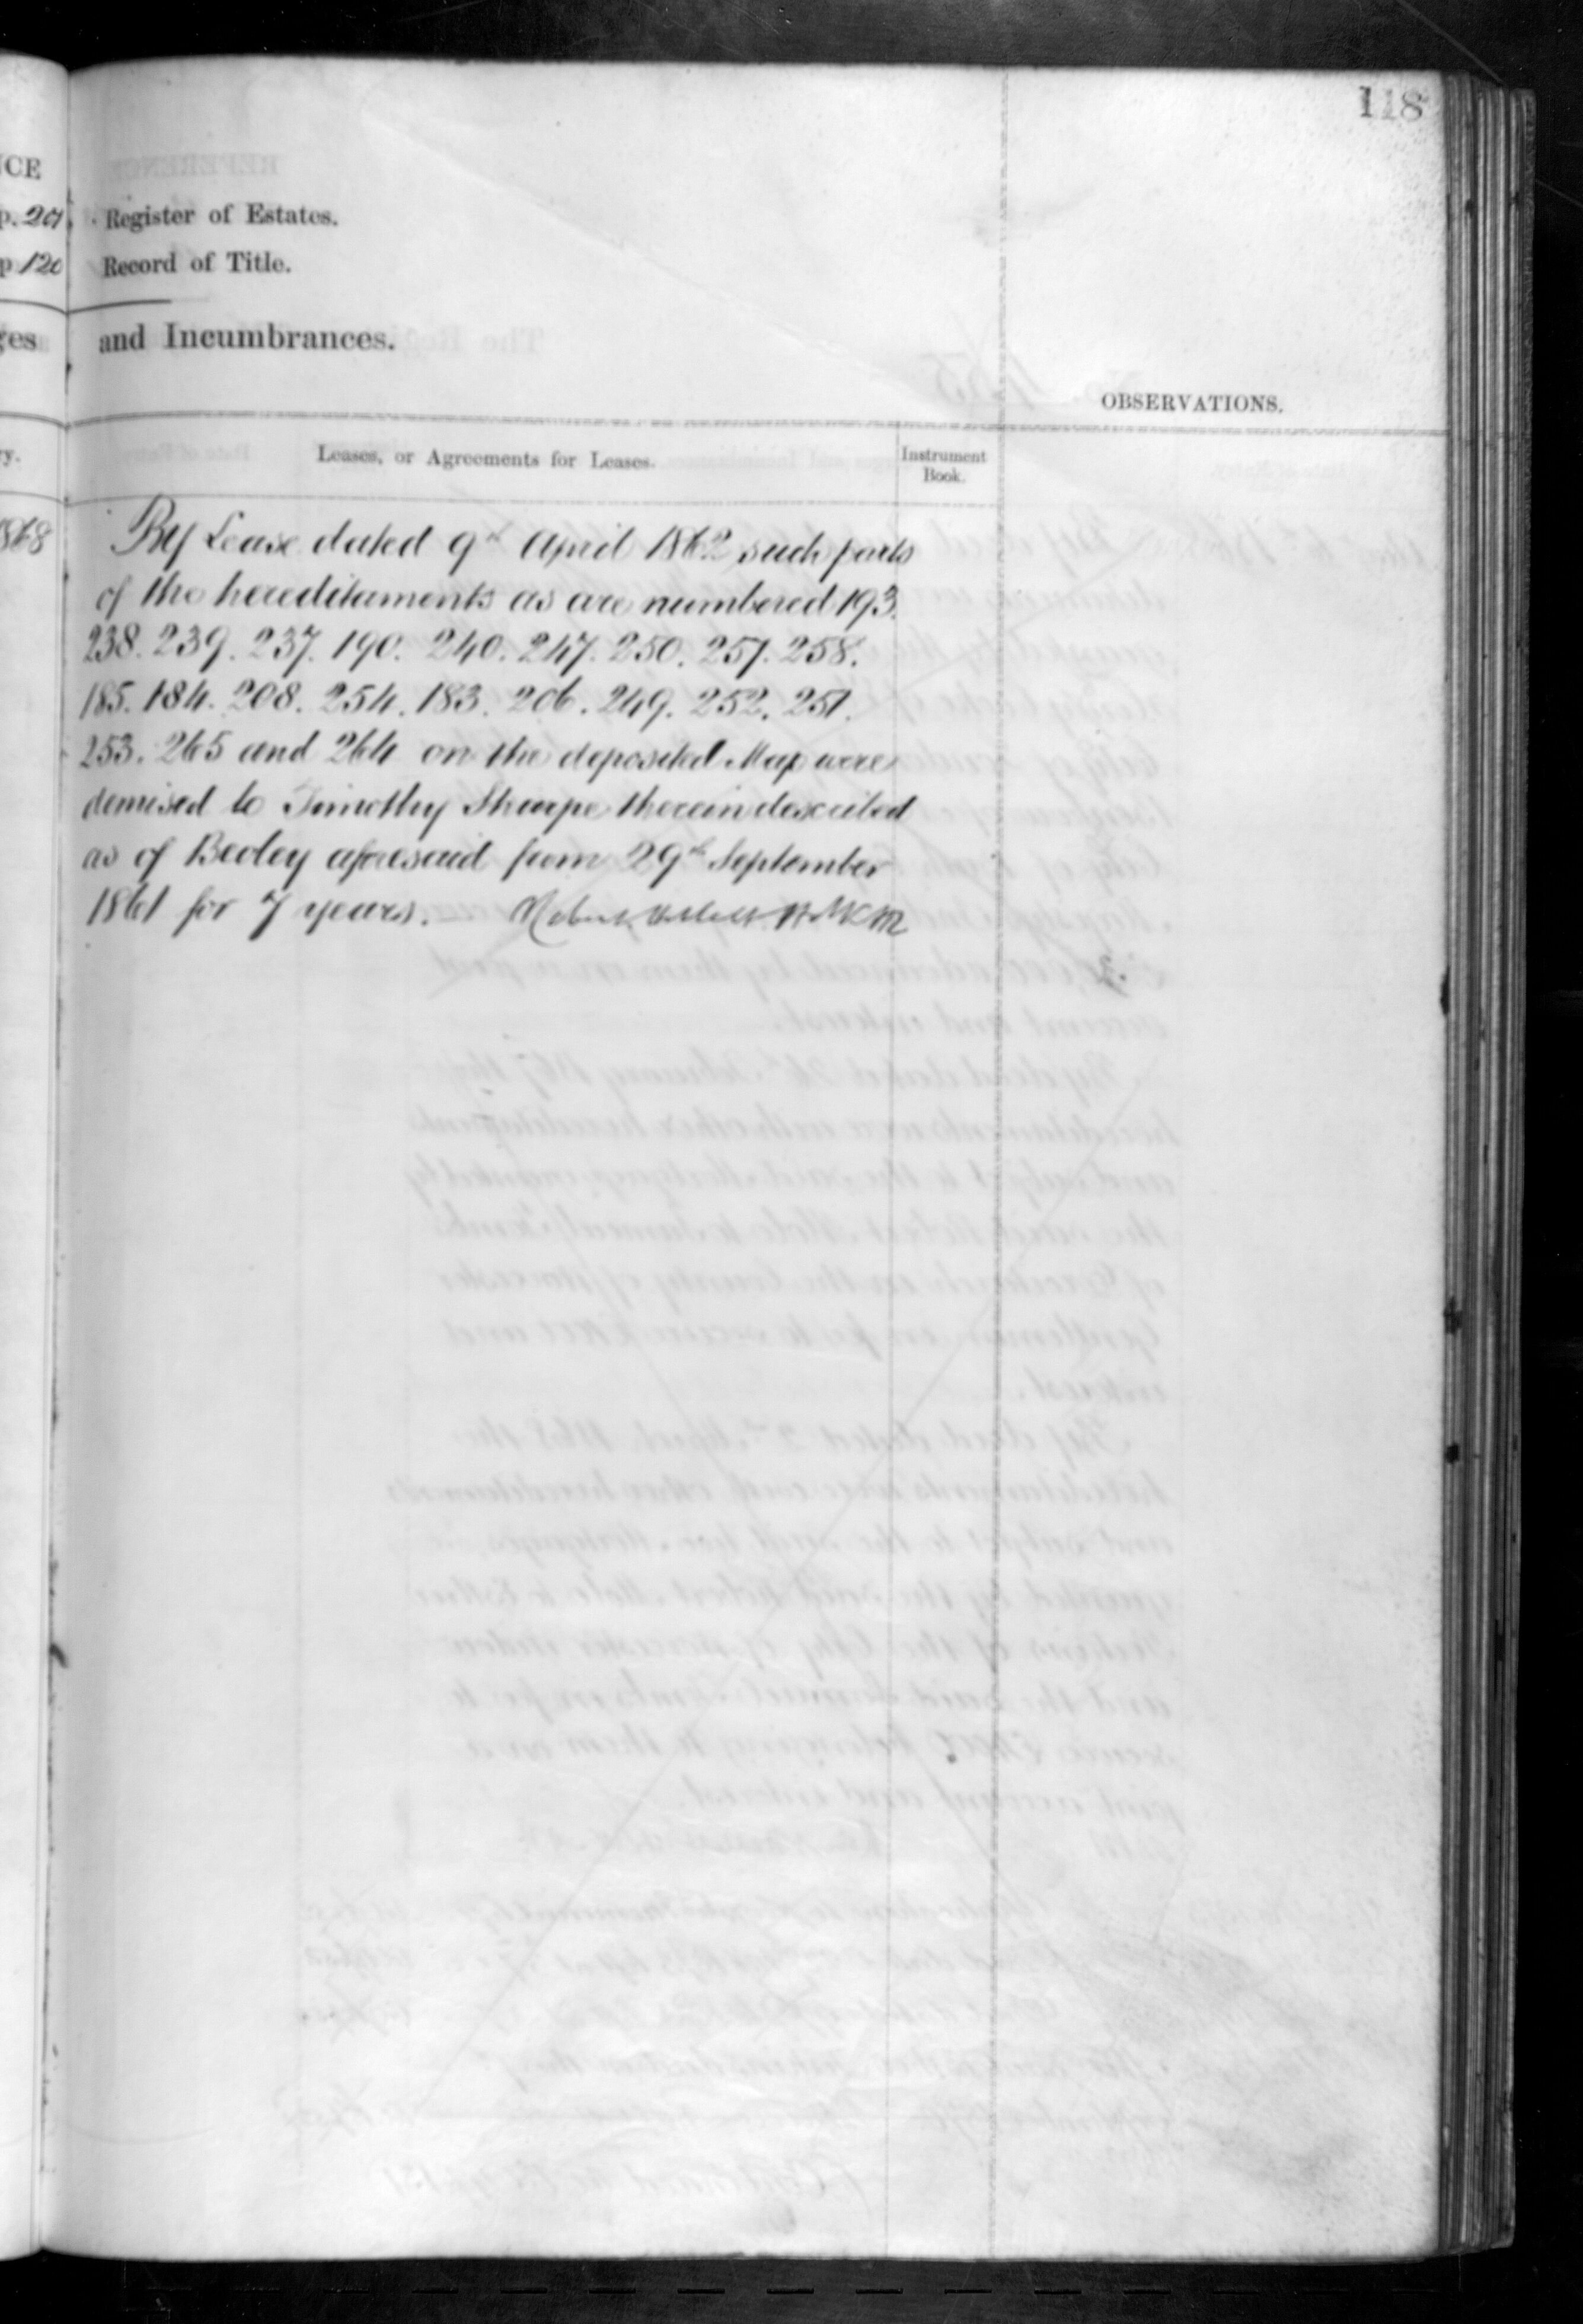 118
CE
p. 201
Register of Estates.
p 120
Record of Title.
ges
and Incumbrances.
OBSERVATIONS.
ry.
Leases, or Agreements for Leases.
Instrument
Book.
1868
By Lease dated 9th April 1862 such parts
of the hereditaments as are numbered 193.
238. 239. 237. 190. 240. 247. 250. 257. 258.
185. 184. 208. 254. 183. 206. 249. 252. 251.
253. 265 and 264 on the deposited Map were
demised to Timothy Sharpe therein described
as of Beoley aforesaid from 29th September
1861 for 7 years.